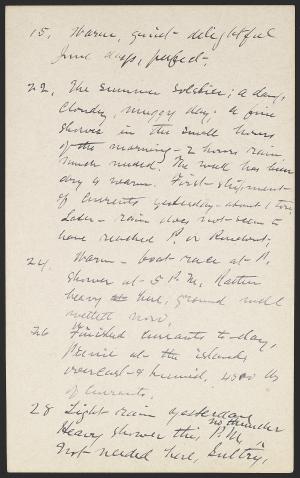 15. Warm, quiet - delightful
June days, perfect.
22. The Summer Solstice; a damp,
cloudy, muggy day; a fine
shower in the small hours
of the morning - 2 hours rain
much needed. The week has been
dry & warm. First shipment
of currants yesterday - about 1 ton.
Later - rain does not seem to
have reached P. or Rinecliff.
24. Warm - boat race at P.
Shower at 5 P.M. Rather
heavy here, ground well
wetted now.
26 Finished currants to-day,
Picnic at the islands
overcast & humid, 4500 lbs
of currants.
28 Light rain yesterday
no thunder
Heavy shower this P.M.
Not needed here, Sultry,